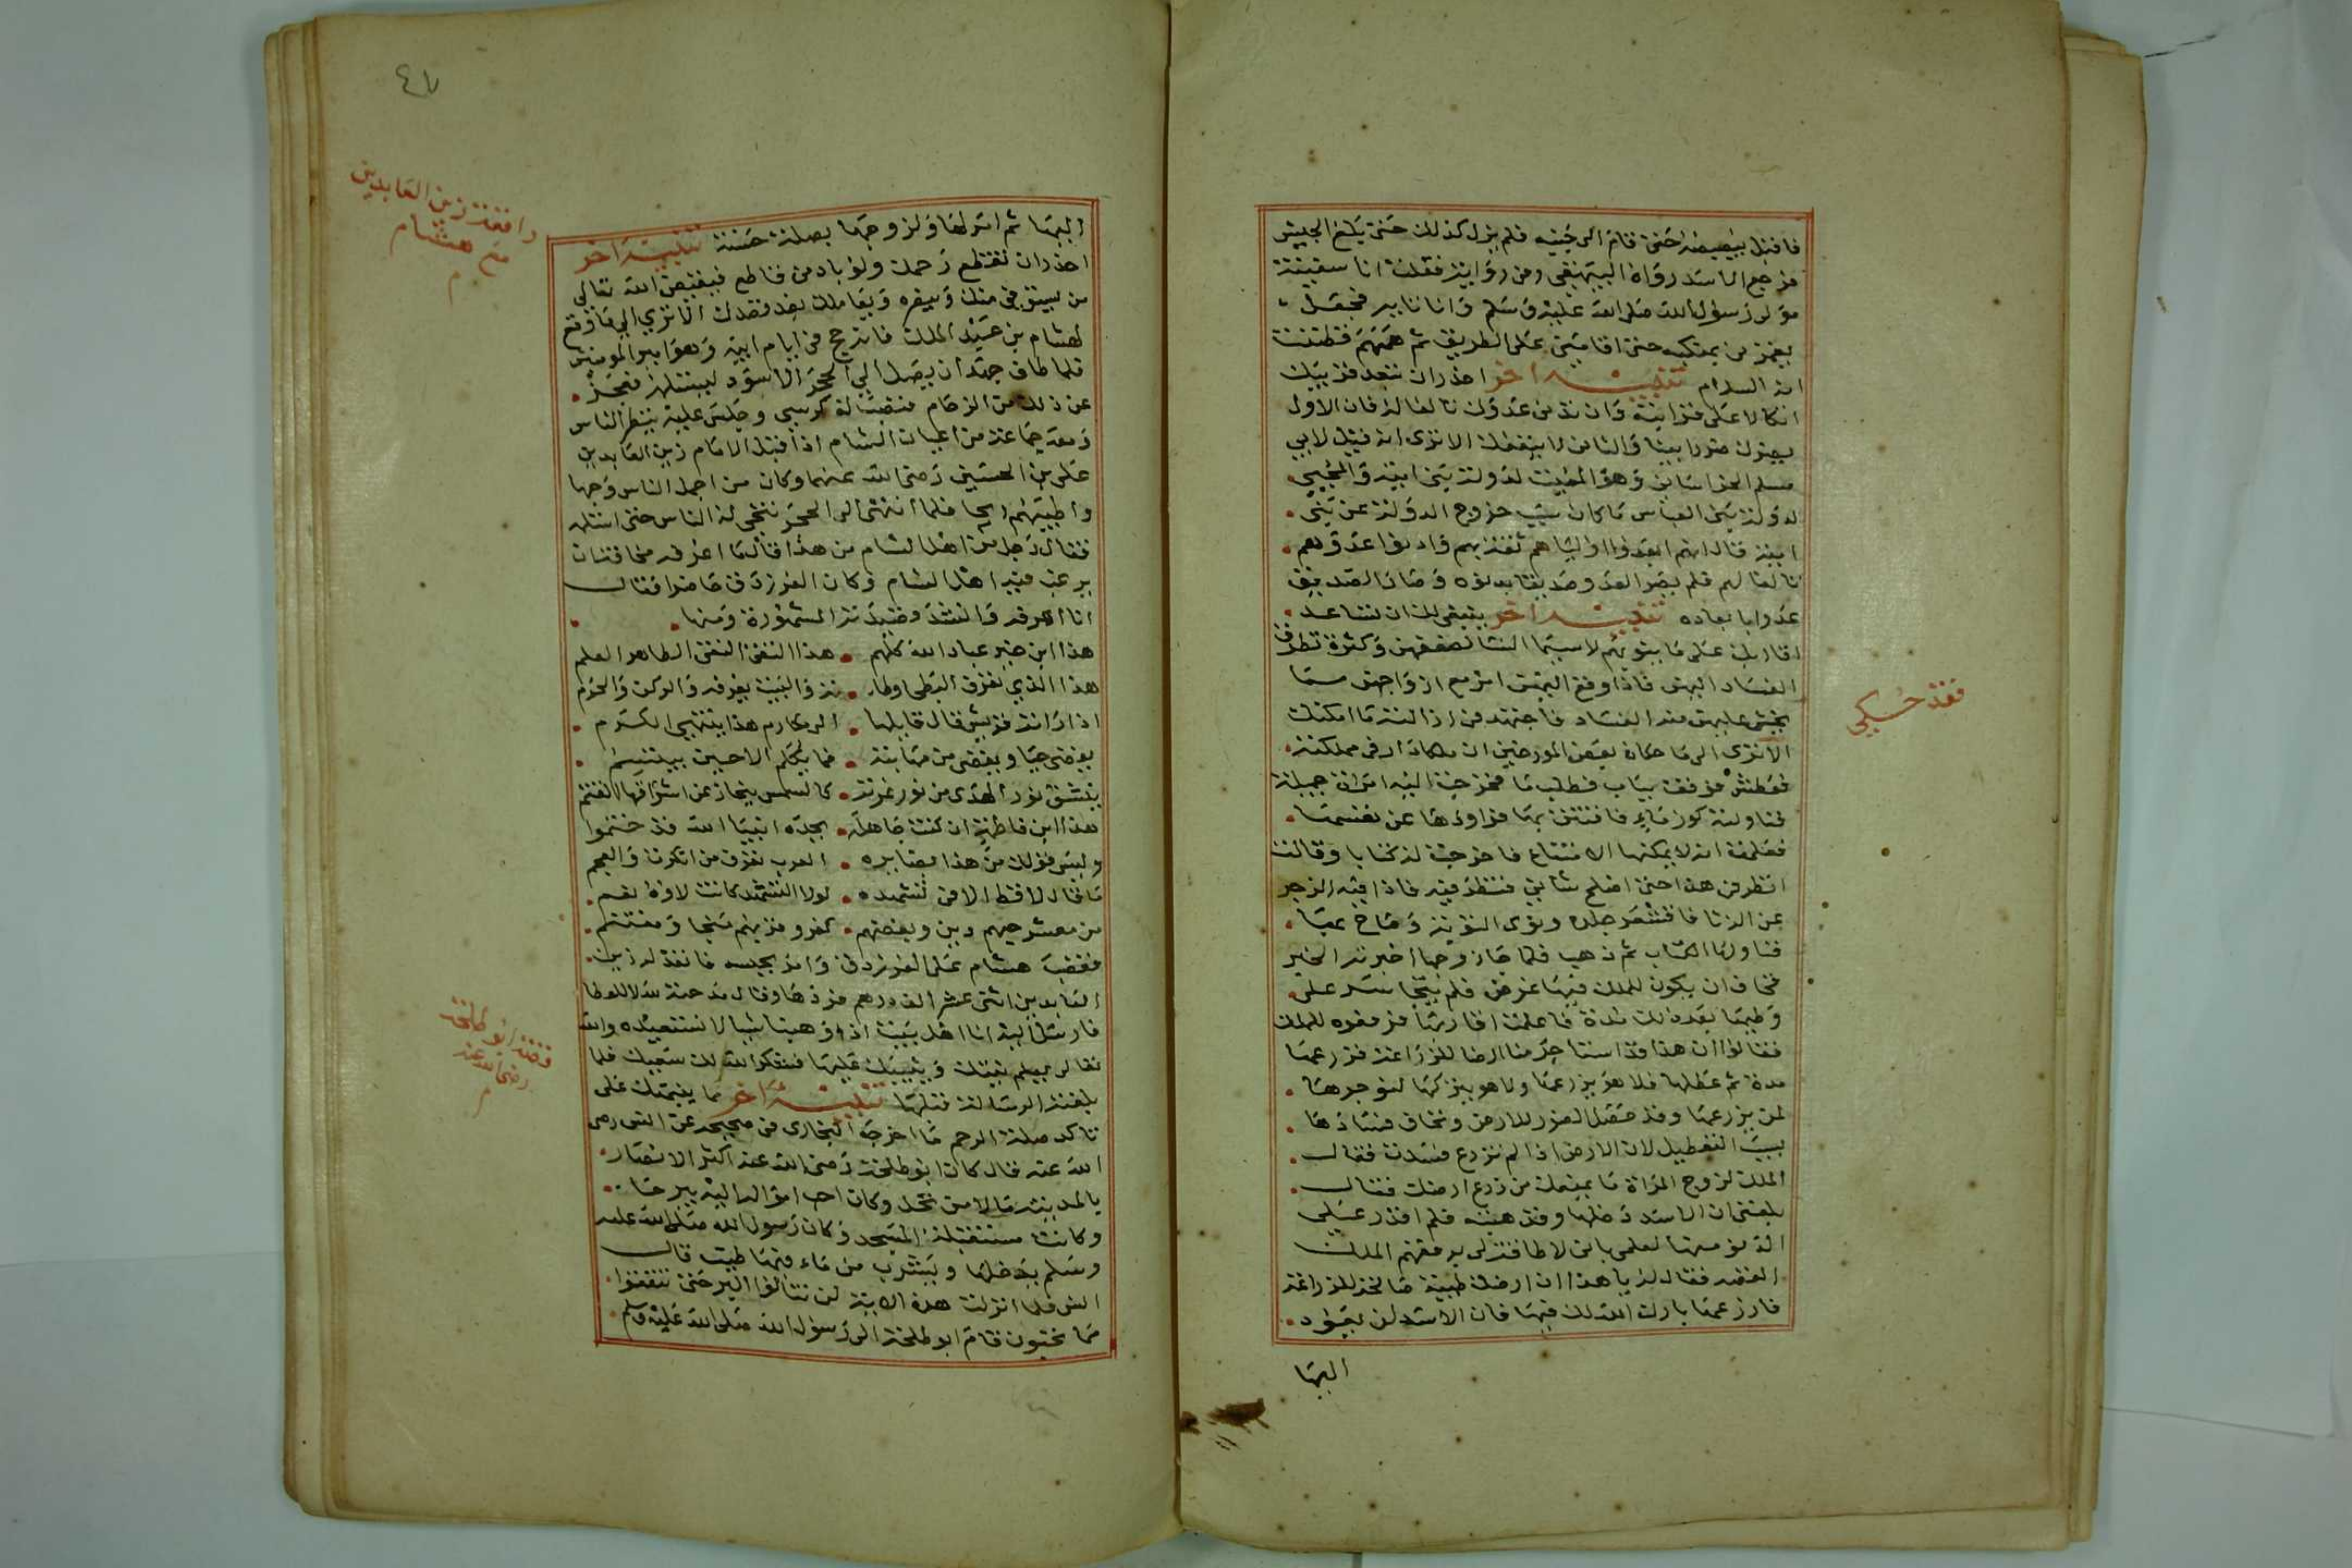 فاقبل يبصبص حتى قام الى جنبه فلم يزل كذلك حتى بلغ الجيش
فرجع الاسد رواه البيهقي ومن رواية فقلت انا سفينة
مولى رسول الله صلى الله عليه وسلم وانا تايه فجعل
يغمزني بمنكبه حتى اقامني على الطريق ثم همهم فظننت
انه السلام تنبيه اخر احذر ان تبعد قريبك
اتكالا على قرابته وان تدني عدوك تالفا له فان الاول
والثاني لا ينفعك الا ترى انه قيل لابي
مسلم الخراساني وهو المميت لدولة بني امية والمحيي
لدولة بني العباس ما كان سبب خروج الدولة عن بني
امية قال انهم ابعدوا اولياهم ثقة بهم وادنوا عدوهم
تالفا لهم فلم يصر العدو صديقا بدنوه وصار الصديق
عدوا بابعاده تنبيه اخر ينبغي لك ان تساعد
اقاربك على ما ينوبهم لاسيما النسا لضعفهن وكثرة تطرق
الفساد اليهن فاذا وقع اليهن امر مع ازواجهن مما
يخشى عليهن منه الفساد فاجتهد في ازالته ما امكنك
الا ترى الى ما حكاه بعض المورخين ان ملكا دار في مملكته
فعطش فوقف بباب فطلب ما فخرجت اليه امراة جميلة
فناولته كوز ماء فافتتن بها فراودها عن نفسها
فعلمت انه لا يمكنها الامتناع فاخرجت له كتابا وقالت
انظر في هذا حتى اصلح شاني فنظر فيه فاذا فيه الزجر
عن الزنا فاقشعر جلده ونوى التوبة وصاح بها
فناولها الكتاب ثم ذهب فلما جا زوجها اخبرته الخبر
فخاف ان يكون للملك فيها غرض فلم يتجاسر على
وطيها بعد ذلك مدة فاعلمت اقاربها فرفعوه للملك
فقالوا ان هذا قد استاجر منا ارضا للزراعة فزرعها
مدة ثم عطلها فلا هو يزرعها ولا هو يتركها لنوجرها
لمن يزرعها وقد حصل الضرر للارض ونخاف فسادها
بسبب التعطيل لان الارض اذا لم تزرع فسدت فقال
الملك لزوج المراة ما يمنعك من زرع ارضك فقال
بلغني ان الاسد دخلها وقد هبته فلم اقدر على
الدنو منها لعلمي باني لا طاقة لي به ففهم الملك
القصة فقال له يا هذا ان ارضك طيبة صالحة للزراعة
فازرعها بارك الله لك فيها فان الاسد لن يعود
اليها
٤٧
اليها ثم امر لها ولزوجها بصلة حسنة تنبيه اخر
احذر ان تقطع رحمك ولو باد من قاطع فيقيض الله تعالى
ويعاملك بضد قصدك الا ترى الى ما وقع
لهشام بن عبد الملك فانه حج في ايام ابيه وهو امير المومنين
فلما طاف جهد ان يصل الى الحجر الاسود ليستلمه فعجز
عن ذلك من الزحام فنصب له كرسي وجلس عليه ينظر الناس
ومعه جماعة من اعيان الشام اذ اقبل الامام زين العابدين
على بن الحسين رضى الله عنهما وكان من اجمل الناس وجها
واطيبهم ارجا فلما انتهى الى الحجر تنحى له الناس حتى استلمه
فقال رجل من اهل الشام من هذا قال ما اعرفه مخافة ان
يرغب فيه اهل الشام وكان الفرزدق حاضرا فقال
انا اعرفه وانشد قصيدته المشهورة ومنها
هذا ابن خير عباد الله كلهم هذا التقي النقي الطاهر العلم
هذا الذي تعرف البطحا وطاته والبيت يعرفه والركن والحرم
اذا راته قريش قال قايلها الى مكارم هذا ينتهي الكرم
يغضي حيا ويغضى من مهابته فما يكلم الا حين يبتسم
ينشق نور الهدى من نور غرته كالشمس ينجاز عن اشراقها القتم
هذا ابن فاطمة ان كنت جاهله بجده انبيا الله قد ختموا
وليس قولك من هذا بضايره العرب تعرف من انكرت والعجم
ما قال لا قط الا في تشهده لولا التشهد كانت لاوه نعم
من معشر حبهم دين وبغضهم كفر وقربهم منجا ومعتصم
فغضب هشام على الفرزدق وامر بحبسه فانفذ له زين
العابدين اثنى عشر الف درهم فردها وقال مدحته لله لا للعطا
فارسل اليه انا اهل بيت اذا وهبنا شيا لا نستعيده والله
تعالى يعلم نيتك ويثيبك عليها فشكر الله لك سعيك فلما
بلغته الرسالة قبلها تنبيه اخر مما ينبهك على
تاكد صلة الرحم ما اخرجه البخارى في صحيحه عن انس رضى
الله عنه قال كان ابو طلحة رضى الله عنه اكثر الانصار
بالمدينة مالا من نخل وكان احب امواله اليه بيرحا
وكانت مستقبلة المسجد وكان رسول الله صلى الله عليه
وسلم يدخلها ويشرب من ماء فيها طيب قال
انس فلما انزلت هذه الاية لن تنالوا البر حتى تنفقوا
مما تحبون قام ابو طلحة الى رسول الله صلى الله عليه وسلم
زين العابدين
مع هشام
قصة ابو طلحة
رضى الله عنه